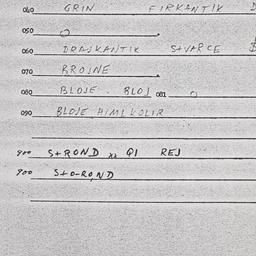 040 GRIN FIRKANTIK
050
060 DRAJKANTIK SVARCE
070 BROJNE
080 BLOJE . BLOJ 081
090 BLOJE HIMLKOLIR
900 STROND QI REJ
900 STO-ROND